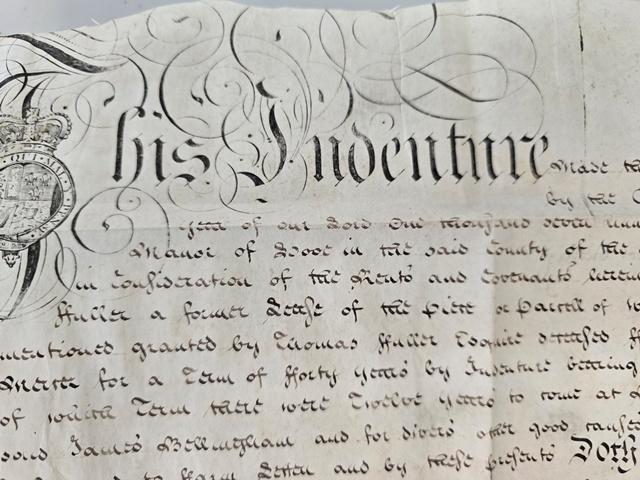 QUI MAL
This Indenture Made th
by the
year of our Lord One thousand seven hun
Manor of Hooe in the said County of the
in Consideration of the Rents and Covenants herein
ffuller a former Lease of the Piece or Parcell of
mentioned granted by Thomas ffuller Esquire deceased
for a Term of fforty years by Indenture bearing
of which Term there were Twelve years to come at
said James Bellingham and for divers other good causes
to ffarm Letten and by these presents Doth